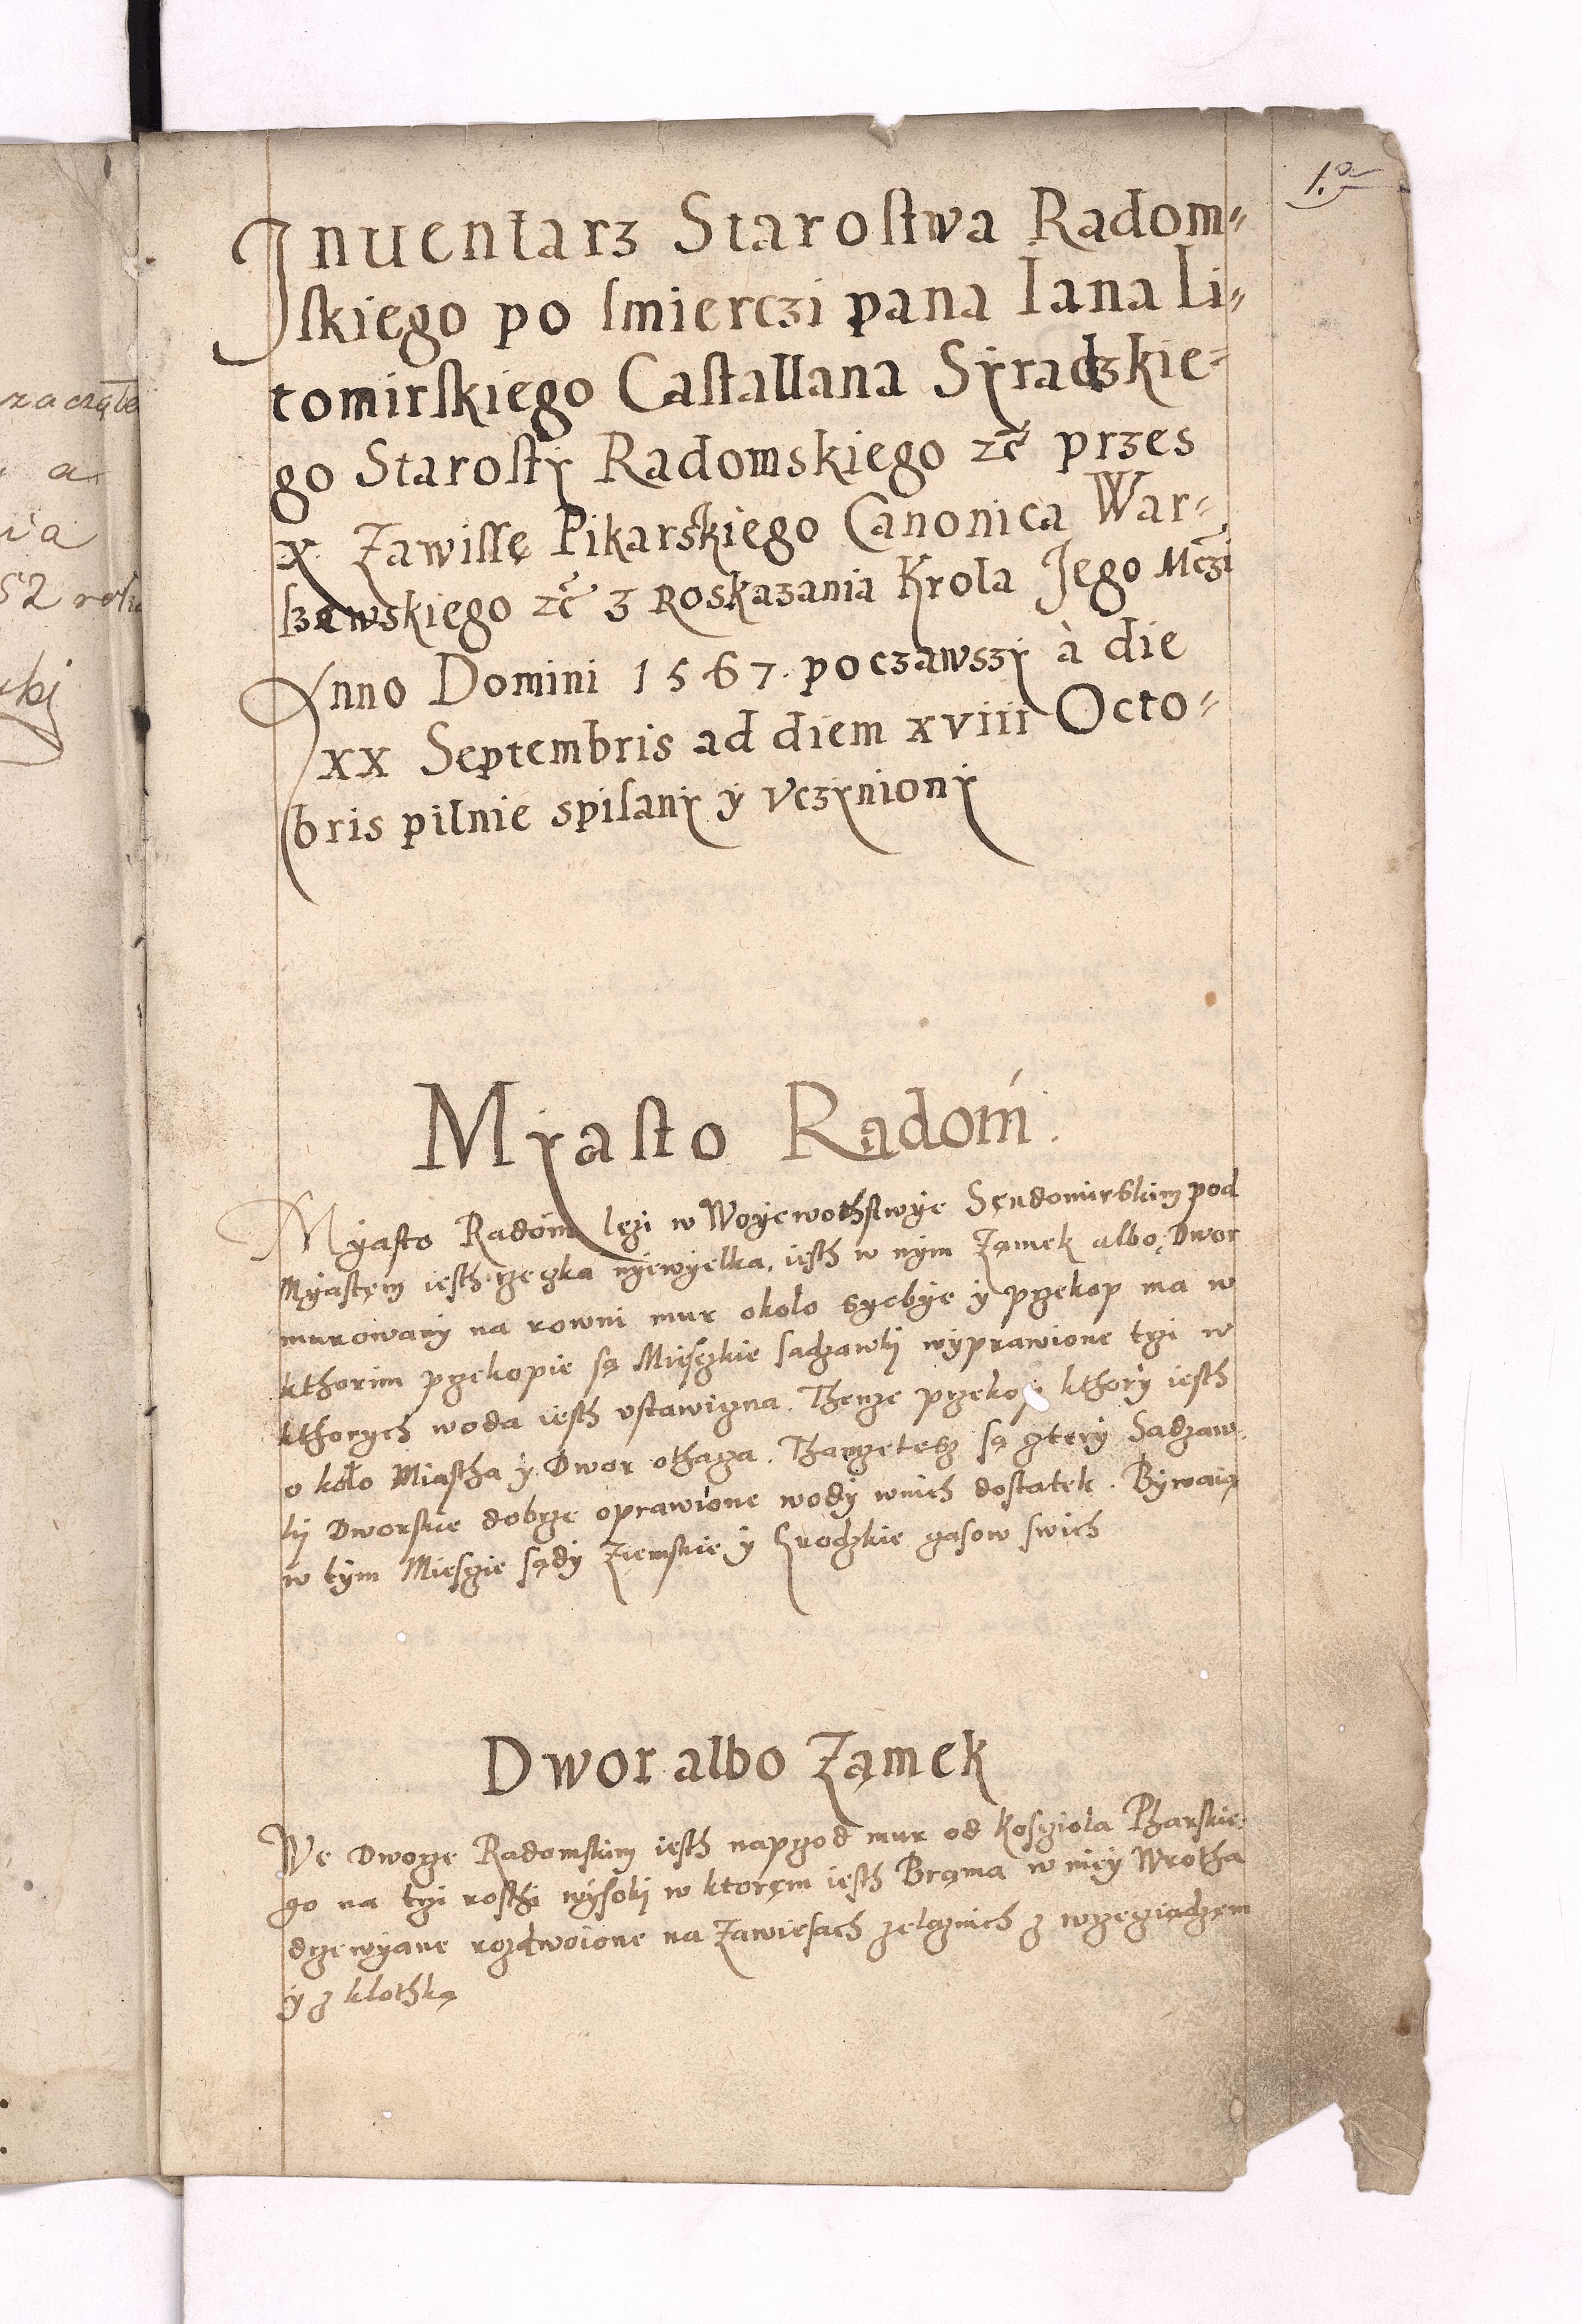 1.a
Inuentarz Starostwa Radom-
skiego po smierczi pana Iana Li-
tomirskiego Castallana Syradzkie-
go Starosty Radomskiego zc przes
X Zawissę Pikarskiego Canonica War-
szewskiego zc z Roskazania Krola Jego Mczi
Anno Domini 1567. poczawszy à die
xx Septembris ad diem xviii Octo-
bris pilnie spisany y Vczyniony
Myasto Radoḿ.
Myasto Radom lezi w Woyewothstwye Sęndomirskim pod
Myastęm iesth rzeczka nyewyelka, iesth w nym Zamek albo Dwor
murowany na rowni mur około syebye y przekop ma w
kthorim przekopie są Mieszkie sadzawki wyprawione trzi w
kthorych woda iesth vstawiczna. Thenze przekop kthory iesth
o koło Miastha y Dwor othacza. Thamzetesz są cztery Sadzaw-
ki Dworskie dobrze oprawione wody wnich dostatek. Bywaią
w tym Miesczie sądy Ziemskie y Grodzkie czasow swich
Dwor albo Zamek
We Dworze Radomskim iesth naprzod mur od Kosczioła Pharskie-
go na trzi rosthi wysoki w ktoręm iesth Brama w niey Wrotha
drzewyane rozdwoione na Zawiesach zelaznich z wrzecziądzem
y z klothką